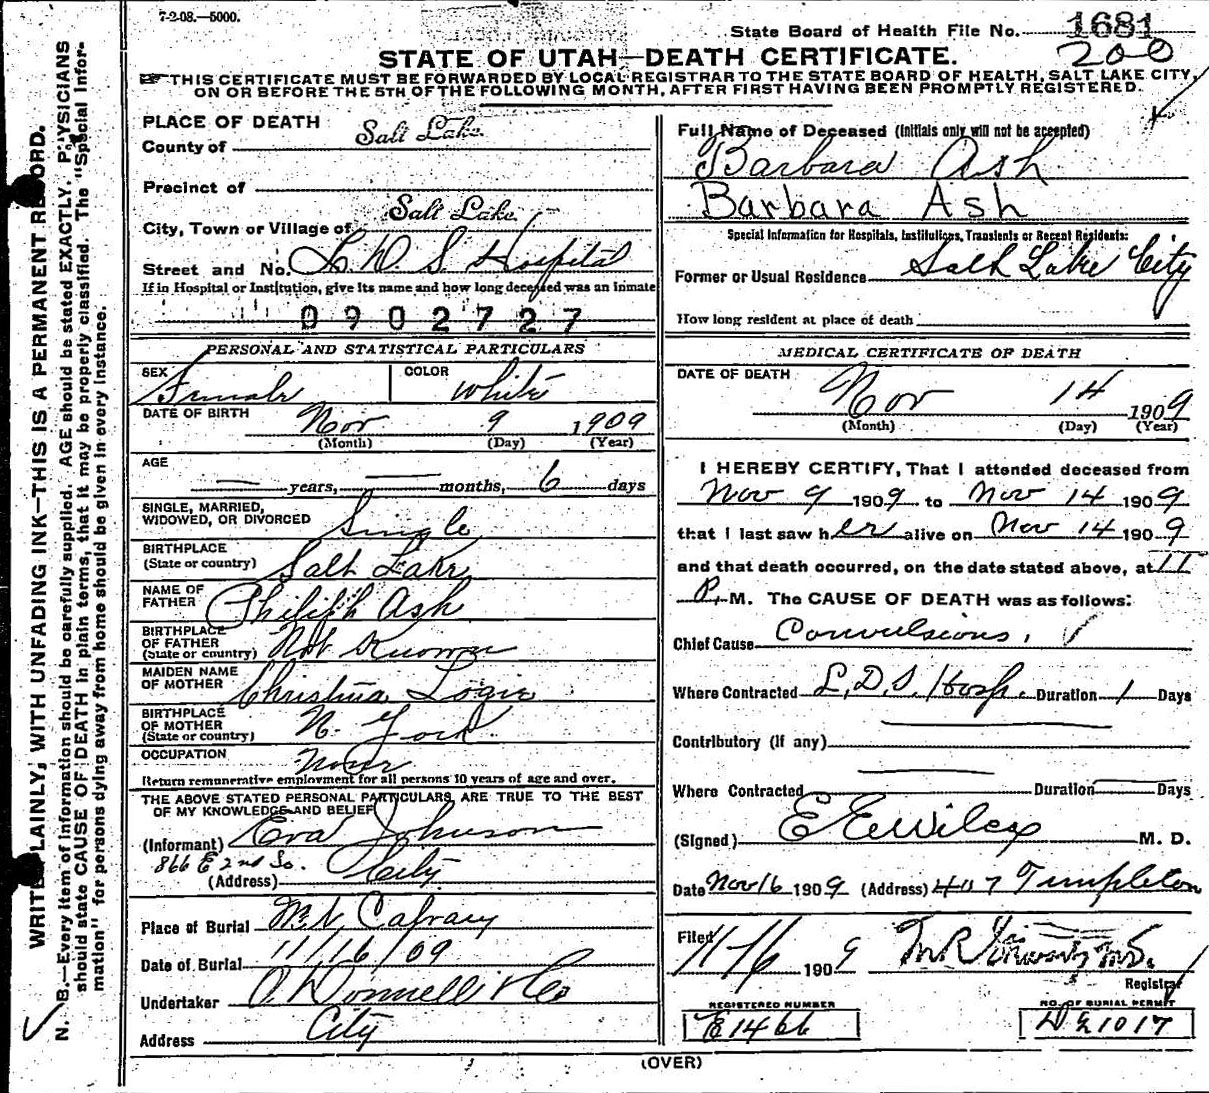 7-2-08.—5000.
State Board of Health File No. 1681
200
STATE OF UTAH—DEATH CERTIFICATE.
THIS CERTIFICATE MUST BE FORWARDED BY LOCAL REGISTRAR TO THE STATE BOARD OF HEALTH, SALT LAKE CITY,
ON OR BEFORE THE 5TH OF THE FOLLOWING MONTH, AFTER FIRST HAVING BEEN PROMPTLY REGISTERED.
WRITE PLAINLY, WITH UNFADING INK—THIS IS A PERMANENT RECORD.
N. B.—Every item of information should be carefully supplied. AGE should be stated EXACTLY. PHYSICIANS
should state CAUSE OF DEATH in plain terms, that it may be properly classified. The "Special Infor-
mation" for persons dying away from home should be given in every instance.
PLACE OF DEATH
County of Salt Lake
Precinct of
City, Town or Village of Salt Lake
Street and No. L. D. S. Hospital
If in Hospital or Institution, give its name and how long deceased was an inmate
0902727
PERSONAL AND STATISTICAL PARTICULARS
SEX Female COLOR White
DATE OF BIRTH Nov 9 1909
(Month) (Day) (Year)
AGE
— years, — months, 6 days
SINGLE, MARRIED,
WIDOWED, OR DIVORCED Single
BIRTHPLACE
(State or country) Salt Lake
NAME OF
FATHER Philiph Ash
BIRTHPLACE
OF FATHER
(State or country) Not Known
MAIDEN NAME
OF MOTHER Christina Logie
BIRTHPLACE
OF MOTHER
(State or country) N. York
OCCUPATION None
Return remunerative employment for all persons 10 years of age and over.
THE ABOVE STATED PERSONAL PARTICULARS ARE TRUE TO THE BEST
OF MY KNOWLEDGE AND BELIEF
(Informant) Eva Johnson
866 E 2nd So.
(Address) City
Place of Burial Mt. Calvary
Date of Burial 11/16/09
Undertaker O'Donnell & Co
Address City
Full Name of Deceased (Initials only will not be accepted)
Barbara Ash
Barbara Ash
Special Information for Hospitals, Institutions, Transients or Recent Residents:
Former or Usual Residence Salt Lake City
How long resident at place of death
MEDICAL CERTIFICATE OF DEATH
DATE OF DEATH
Nov 14 1909
(Month) (Day) (Year)
I HEREBY CERTIFY, That I attended deceased from
Nov 9 1909 to Nov 14 1909
that I last saw her alive on Nov 14 1909
and that death occurred, on the date stated above, at 11
P. M. The CAUSE OF DEATH was as follows:
Chief Cause Convulsions.
Where Contracted L.D.S. Hosp. Duration 1 Days
Contributory (if any)
Where Contracted Duration Days
(Signed) E E Wilcox M. D.
Date Nov 16 1909 (Address) 407 Templeton
Filed 11-16 1909
Registrar
REGISTERED NUMBER
E1466
NO. OF BURIAL PERMIT
1017
(OVER)